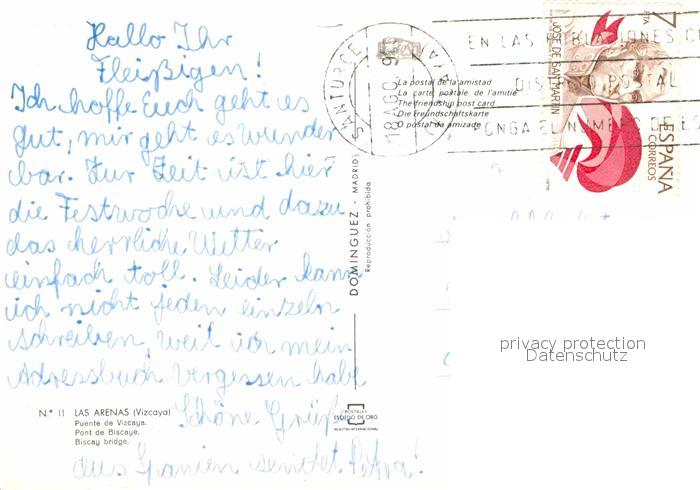 Hallo Ihr
Fleißigen!
Ich hoffe Euch geht es
gut, mir geht es wunder
bar. Zur Zeit ist hier
die Festwoche und dazu
das herrliche Wetter
einfach toll. Leider kann
ich nicht jeden einzeln
schreiben, weil ich mein
Adressbuch vergessen habe
Schöne Grüße
aus Spanien sendet Petra!
N.º 11 LAS ARENAS (Vizcaya)
Puente de Vizcaya.
Pont de Biscaye.
Biscay bridge.
POSTALES
ESCUDO DE ORO
DOMINGUEZ - MADRID
Reproducción prohibida
La postal de la amistad
La carte postale de l'amitié
The friendship post card
Die Freundschaftskarte
O postal da amizade
SANTURCE
18 AGO
EN LAS
DISTRITO POSTAL
PONGA EL NUMERO DE
7 PTA
JOSE DE SAN MARTIN
ESPAÑA
CORREOS
privacy protection
Datenschutz